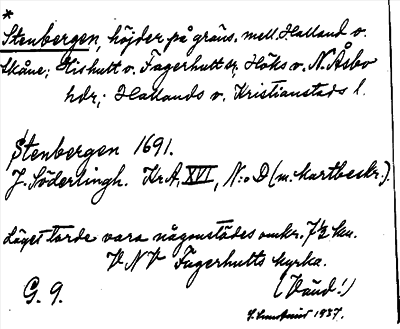 *
Stenbergen, höjder på gräns. mell. Halland o.
Skåne; Hishult o. Fagerhult sr; Höks o. N. Åsbo
hdr; Hallands o. Kristianstads l.
Stenbergen 1691.
J. Söderlingh. Kr.A, XVI, N:o D (m. kartbeskr.).
Läget torde vara någonstädes omkr. 7½ km.
V N V Fagerhults kyrka.
G. 9.
(Vänd!)
1937.